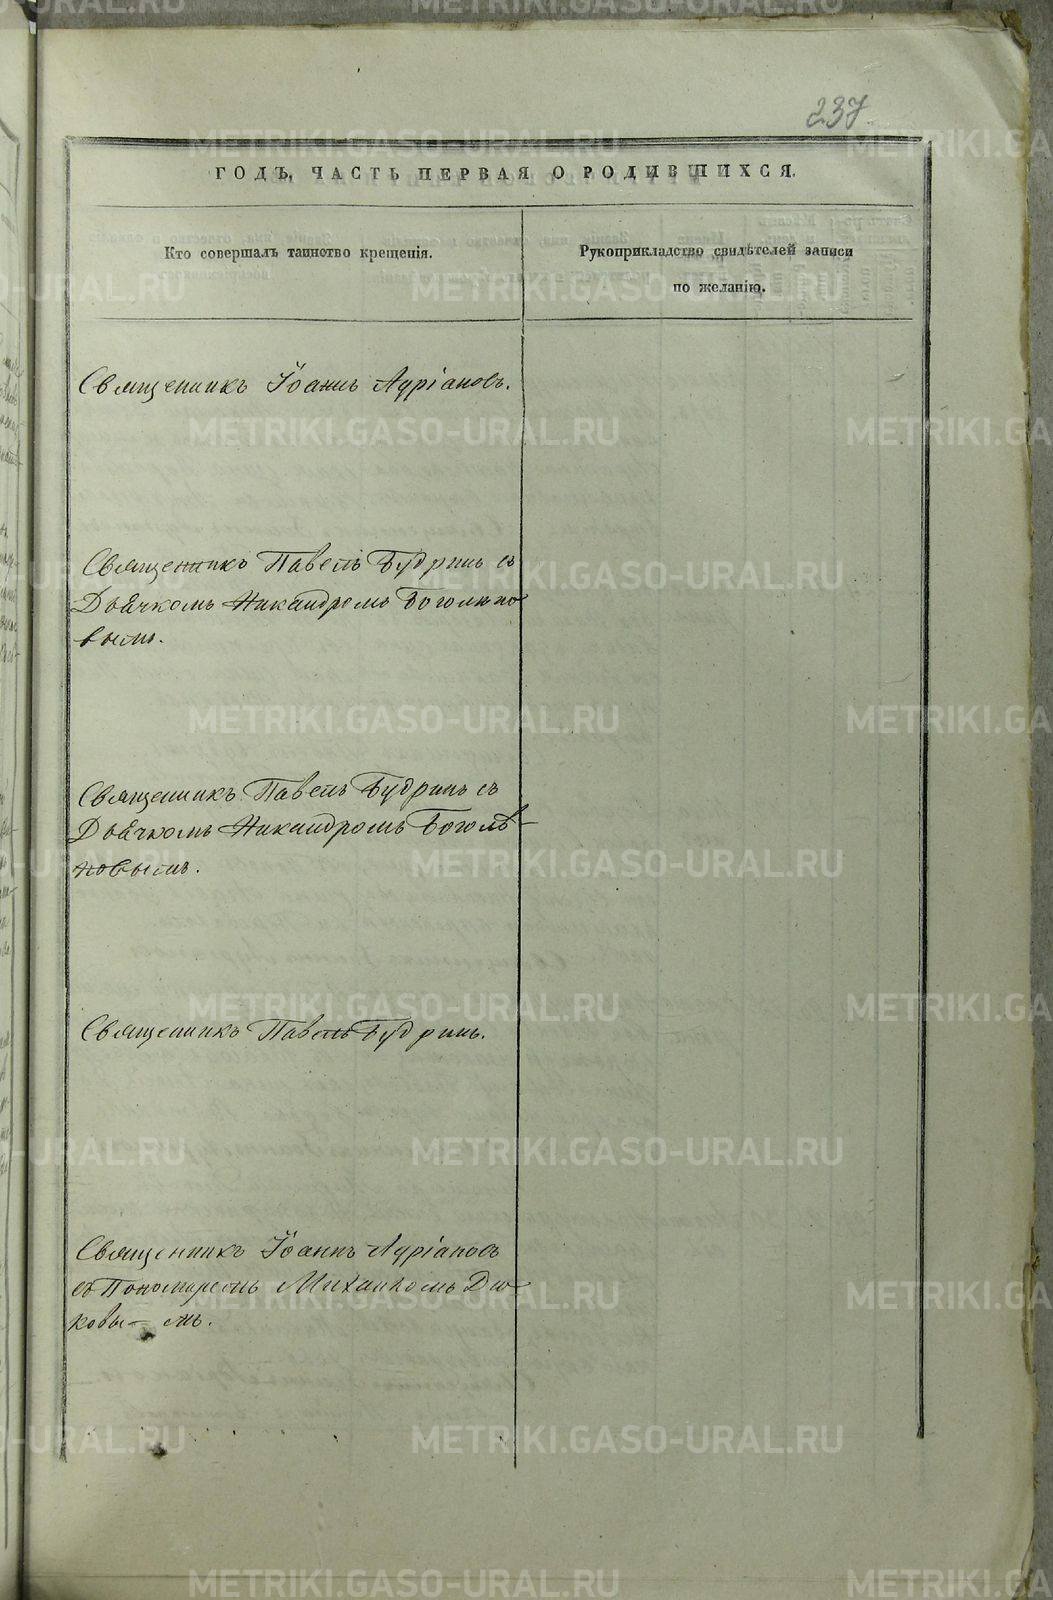 237.
ГОДЪ, ЧАСТЬ ПЕРВАЯ О РОДИВШИХСЯ.
Кто совершалъ таинство крещенія.
Рукоприкладство свидѣтелей записи
по желанію.
Священникъ Іоаннъ Адріановъ.
Священникъ Павелъ Будринъ съ
Дьячкомъ Никандромъ Боголѣпо
вымъ.
Священникъ Павелъ Будринъ съ
Дьячкомъ Никандромъ Боголѣ-
повымъ.
Священникъ Павелъ Будринъ.
Священникъ Іоаннъ Адріановъ
съ Пономаремъ Михаиломъ
ковы-мъ.
METRIKI.GASO-URAL.RU